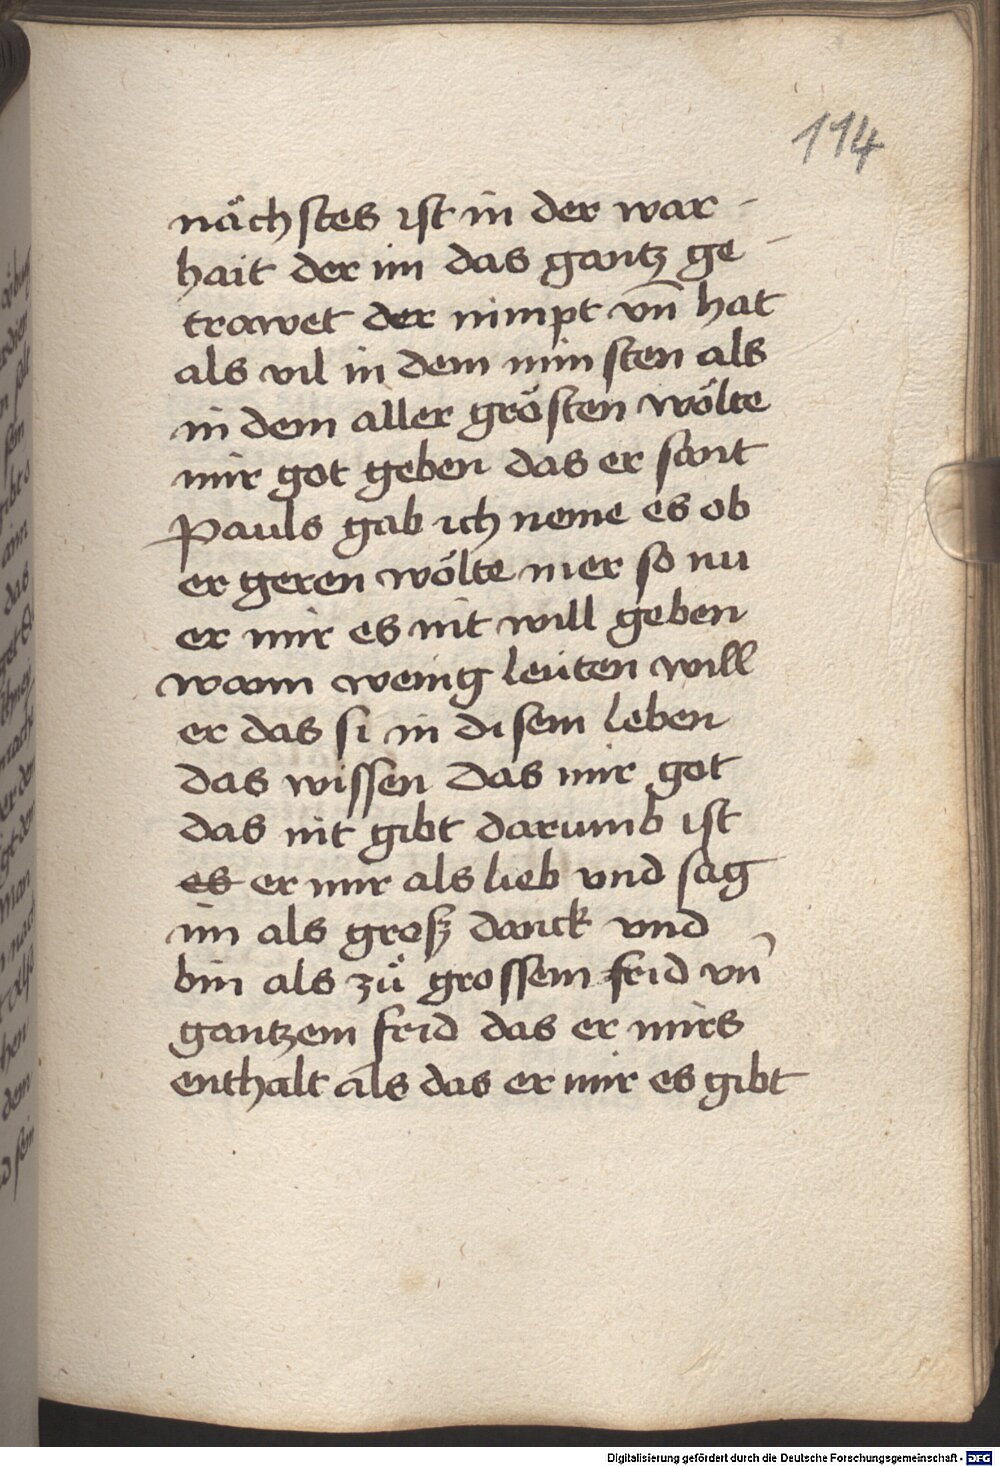 114
nächstes ist in der war-
hait der im das gantz ge-
trawet der nimpt vn̄ hat
als vil in dem minsten als
in dem aller grösten wölte
mir got geben das er sant
Pauls gab ich neme es ob
er geren wölte mer so nu
er mir es nit will geben
wann wenig leüten will
er das si in disem leben
das wissen das mir got
das nit gibt darumb ist
es er mir als lieb vnd sag
im als grosz danck vnd
bin als zů grossem frid vn̄
gantzem frid das er mirs
enthalt als das er mir es gibt
Digitalisierung gefördert durch die Deutsche Forschungsgemeinschaft - DFG